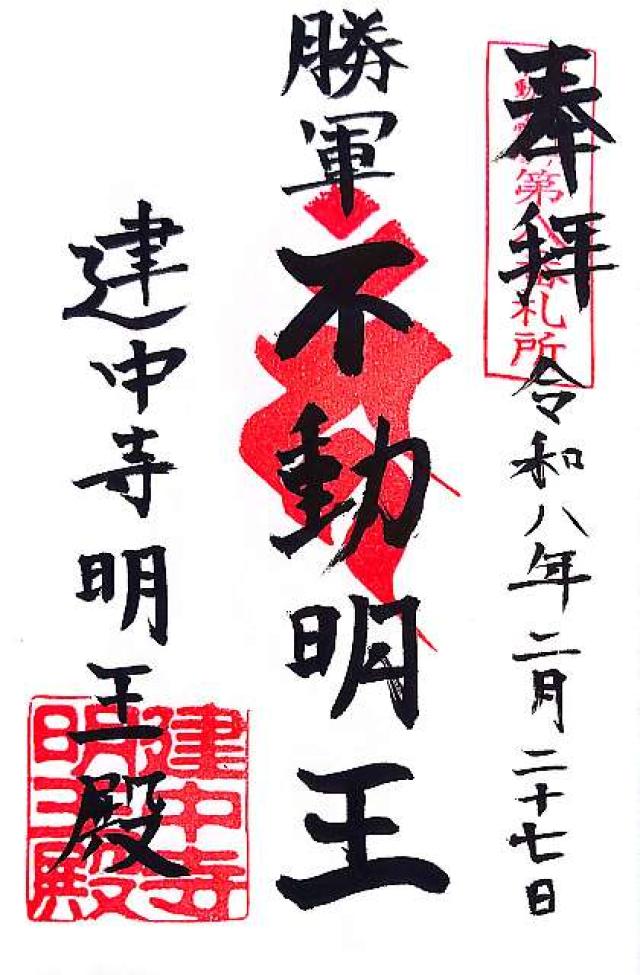 奉拝 令和八年二月二十七日
第八番札所
勝軍不動明王
建中寺明王殿
建中寺
明王殿